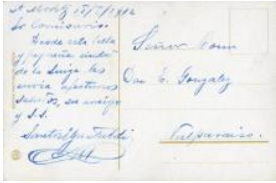 St Moritz 15/2/1914
Sr Comisario.
Desde esta bella
y pequeña ciudad
de la Suiza les
envia afectuosos
saludos, su amigo
y S.S.
Señor Don
E. Gonzalez
Valparaiso.